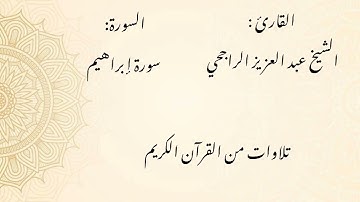 القارئ : السورة:
الشيخ عبد العزيز الراجحي سورة إبراهيم
تلاوات من القرآن الكريم